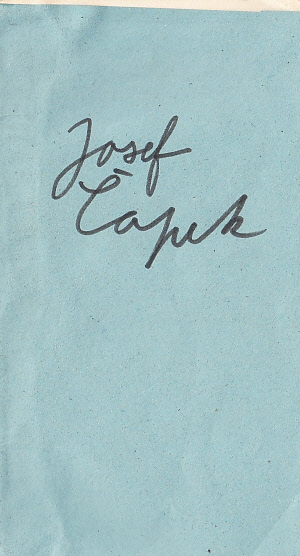 Josef
Čapek